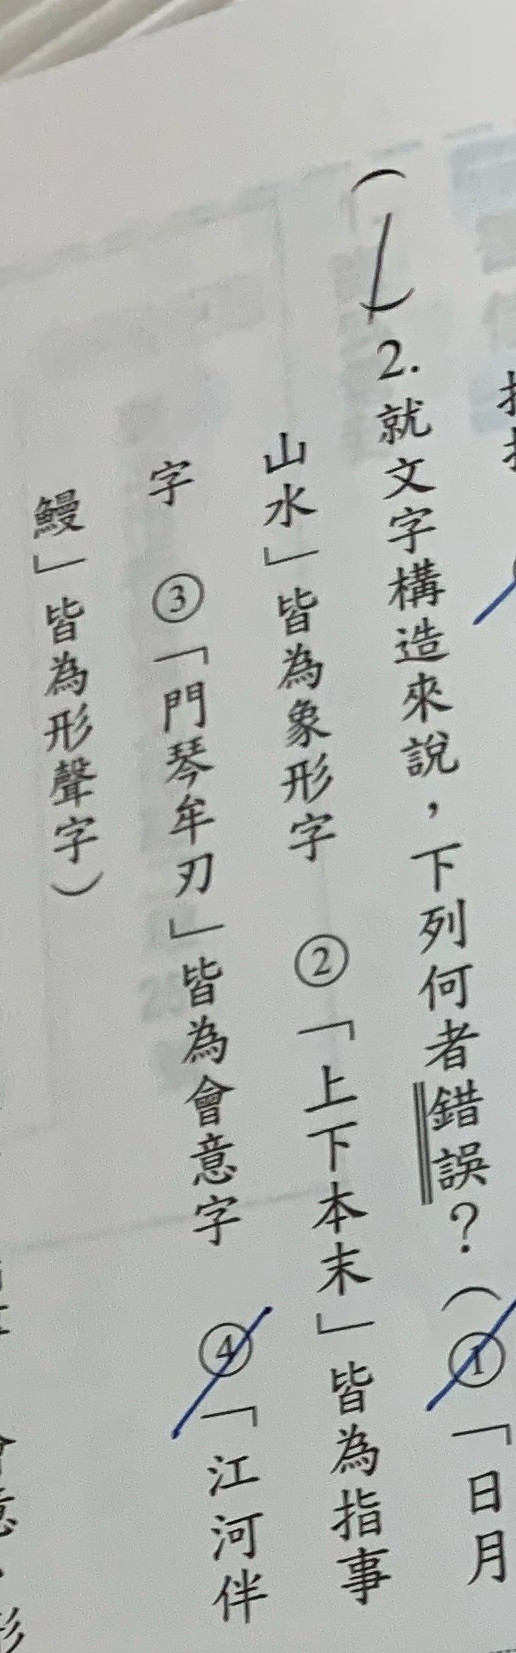 ( ) 2.就文字構造來說，下列何者錯誤？（①「日月
山水」皆為象形字 ②「上下本末」皆為指事
字 ③「門琴牟刃」皆為會意字 ④「江河伴
鰻」皆為形聲字）